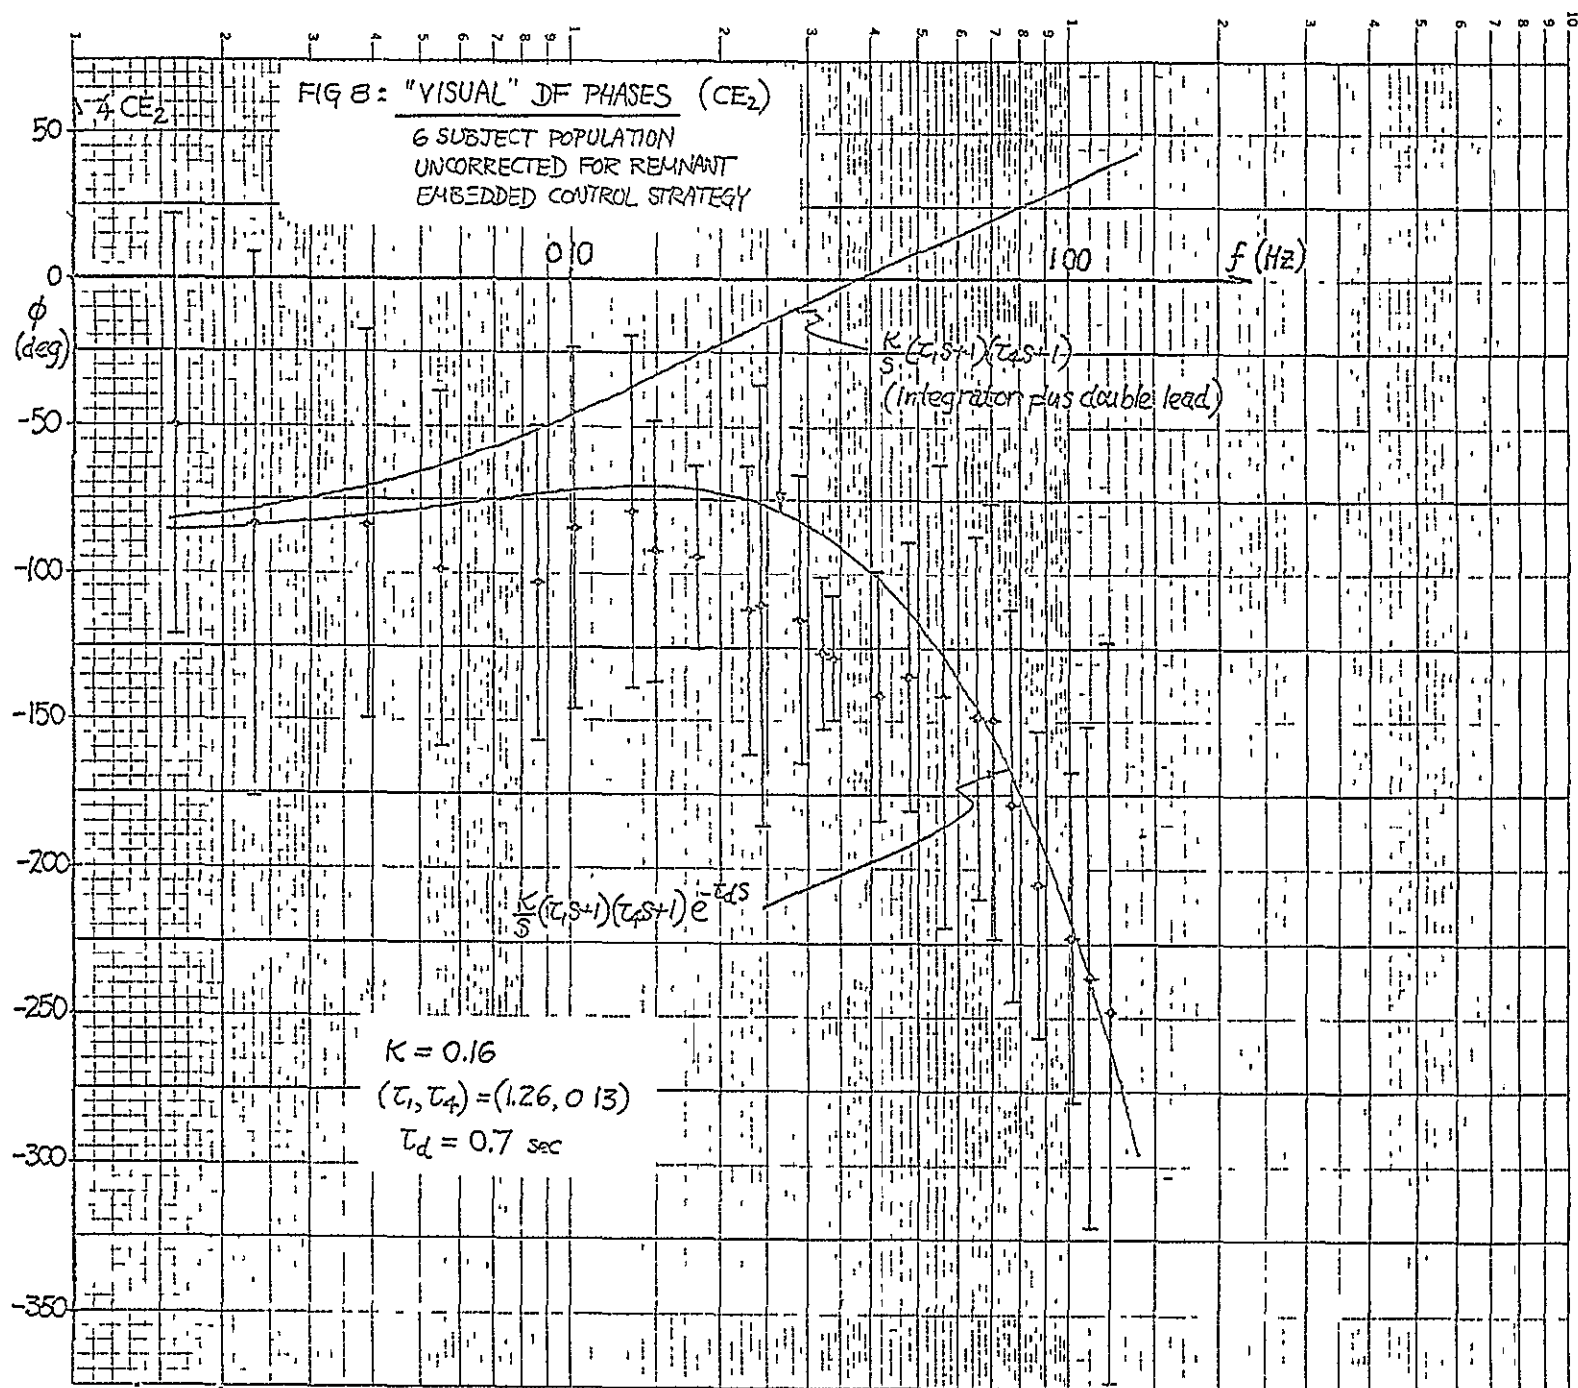 1 2 3 4 5 6 7 8 9 1 2 3 4 5 6 7 8 9 1 2 3 4 5 6 7 8 9 10
∡ CE₂
FIG 8: "VISUAL" DF PHASES (CE₂)
6 SUBJECT POPULATION
UNCORRECTED FOR REMNANT
EMBEDDED CONTROL STRATEGY
50
0
φ
(deg)
-50
-100
-150
-200
-250
-300
-350
0 10
1 00
f (HZ)
K/S (τ₁S+1)(τ₄S+1)
(integrator plus double lead)
K/S (τ₁S+1)(τ₄S+1) e^-τdS
K = 0.16
(τ₁, τ₄) = (1.26, 0 13)
τd = 0.7 sec